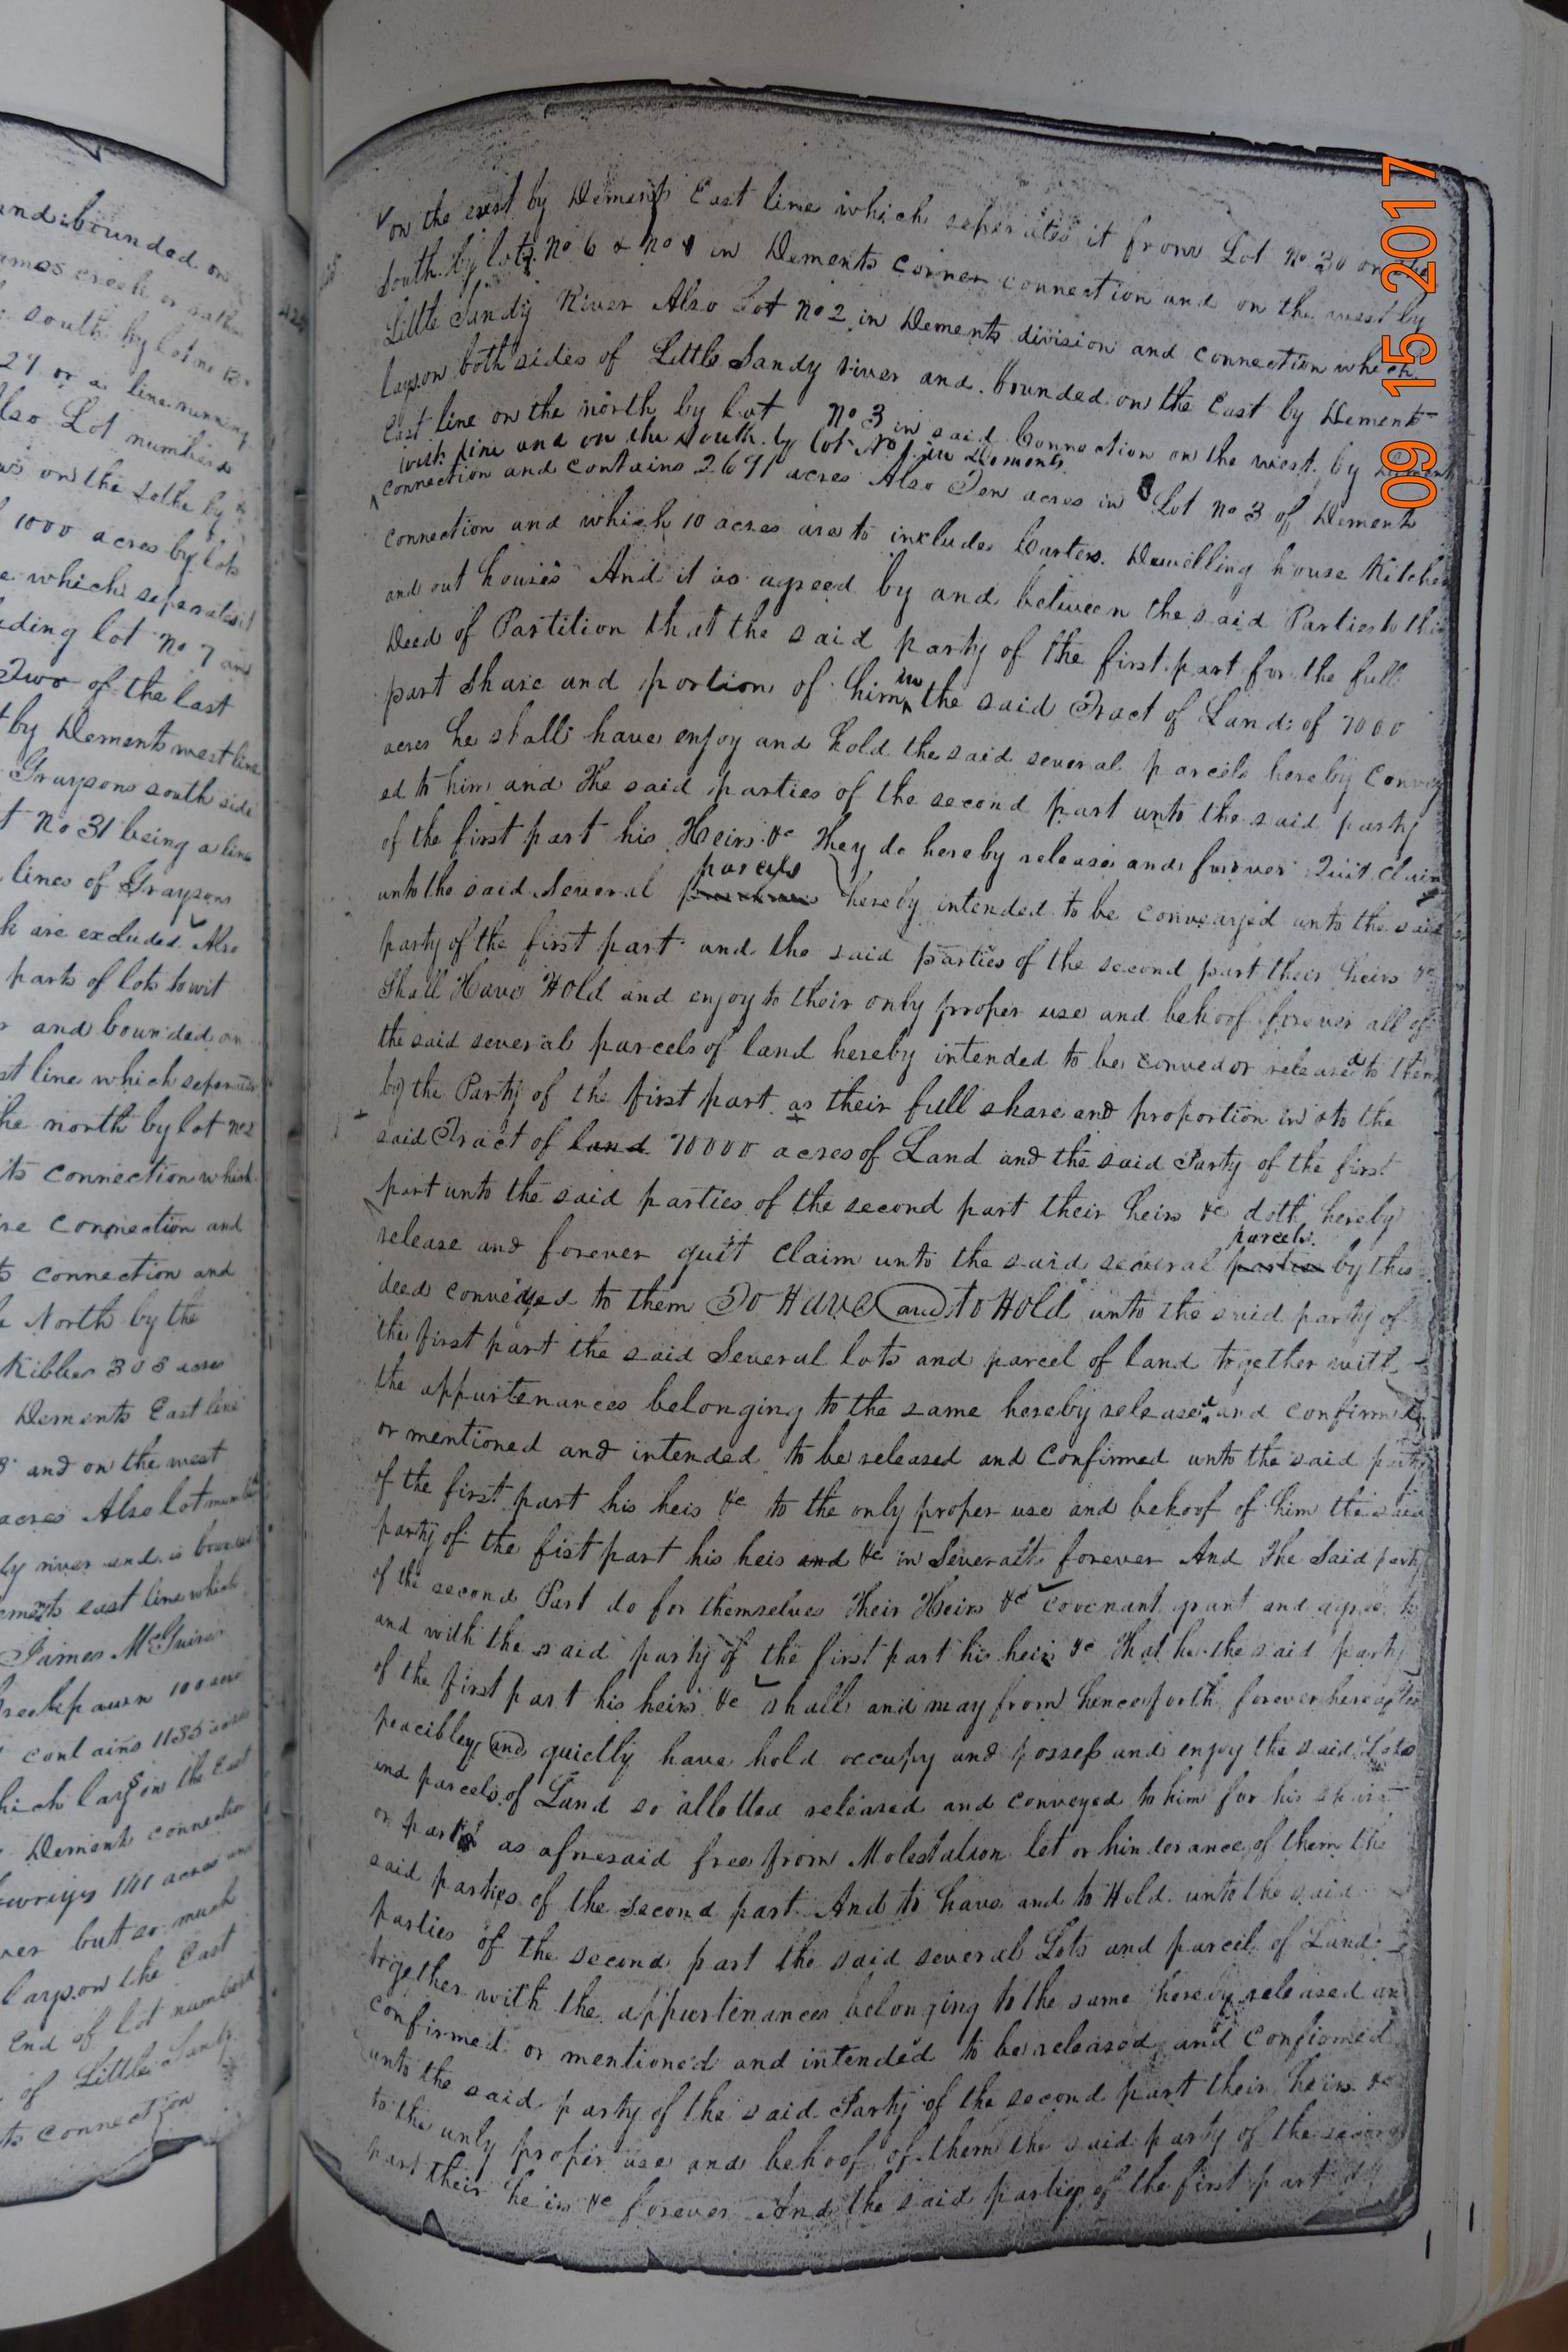 and bounded on
south by lot no 12
27 or a line running
Also Lot numbers
on the Sothe by
1000 acres by lots
which seperates it
ding lot no 7 and
Two of the last
by Dements west line
Graysons south side
no 31 being a line
lines of Graysons
k are excluded Also
parts of lots to wit
and bounded on
st line which seperates
he north by lot no 2
ts connection which
re connection and
connection and
North by the
Kibbes 305 acres
Dements East line
and on the west
acres Also lot numbd
ly river and is bound
ements east line which
James McGuires
100 acre
contains 1135 acres
hich lays on the East
Dements connection
141 acres and
ver but so much
lays on the East
End of lot numbered
of Little Sandy
ts connection
on the east by Dements East line which seperates it from Lot No 30 on the
South by lots No 6 & no 1 in Dements corner connection and on the west by
Little Sandy River Also Lot No 2 in Dements division and connection which
lays on both sides of Little Sandy river and bounded on the East by Dements
East line on the north by Lot No 3 in said Connection on the west by Dements
west line and on the South by lot No 1 in Dements
connection and contains 2691 acres Also Ten acres in Lot No 3 of Dements
connection and which 10 acres are to include Carters Dewelling house Kitchen
and out houses And it is agreed by and between the said Parties to this
Deed of Partition that the said party of the first part for the full
part Share and portion of him in the said Tract of Land of 7000
acres he shall have enjoy and hold the said several parcels hereby convey
ed to him and The said parties of the second part unto the said party
of the first part his Heirs &c They do hereby release and forever Quit Claim
unto the said Several parcels hereby intended to be convearyed unto the said
party of the first part and the said parties of the second part their heirs &c
Shall Have Hold and enjoy to their only proper use and behoof forever all of
the said several parcels of land hereby intended to be convedor released to them
by the Party of the first part as their full share and proportion in & to the
said Tract of land 70000 acres of Land and the said Party of the first
part unto the said parties of the second part their heirs &c doth hereby
release and forever quit claim unto the said several parties parcels by this
deed conveyed to them To Have and to Hold unto the said party of
the first part the said Several lots and parcel of land together with
the appurtenances belonging to the same hereby released and confirmed
or mentioned and intended to be released and confirmed unto the said party
of the first part his heis &c to the only proper use and behoof of him the said
party of the fist part his heis and &c in Severalts forever And The Said party
of the second Part do for themselves Their Heirs &c covenant grant and agree to
and with the said party of the first part his heirs &c That he the said party
of the first part his heirs &c shall and may from henceforth forever hereafter
peacibley and quietly have hold occupy and possess and enjoy the said Lots
and parcels of Land so allotted released and conveyed to him for his share
or part as afresaid free from Molestation let or hinderance of them the
said parties of the second part And to have and to Hold unto the said
parties of the second part the said several Lots and parcel of Land
together with the appurtenances belonging to the same hereby released an
confirmed or mentioned and intended to be released and confirmed
unto the said party of the said Party of the second part their heirs &c
to the only proper use and behoof of them the said party of the second
part their heirs &c forever And the said parties of the first part
09 15 2017